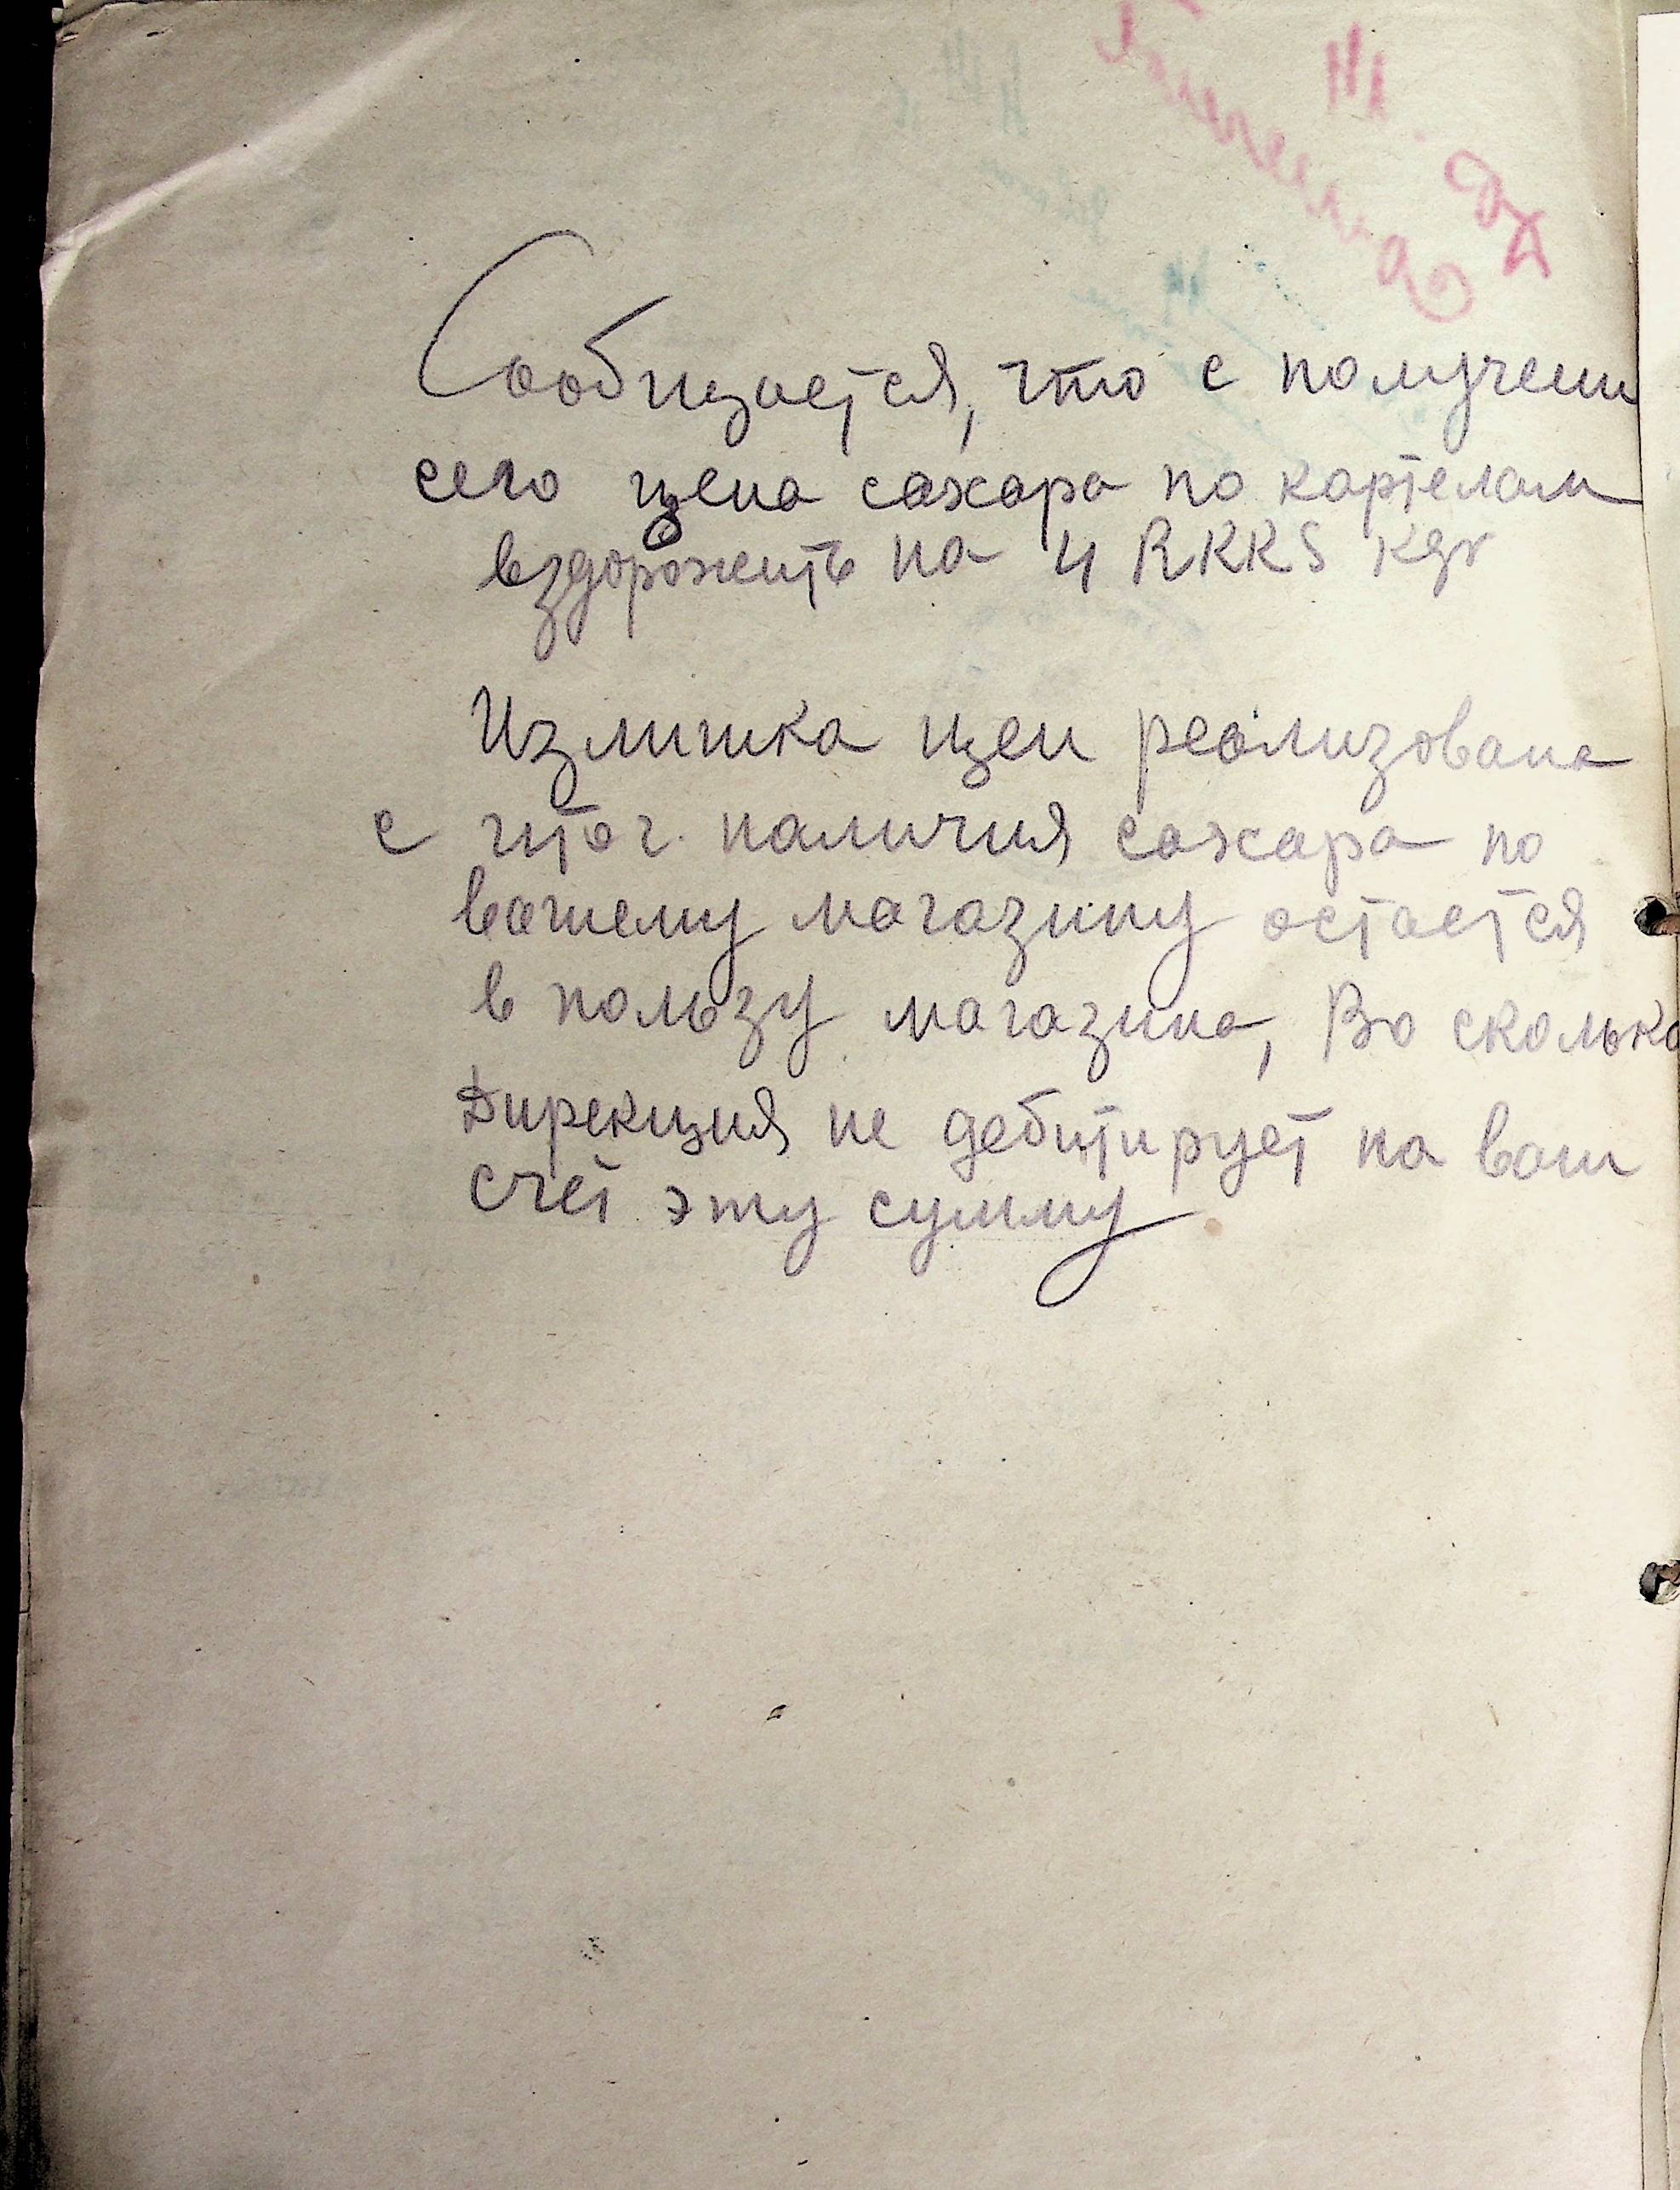 Сообщается, что с получени
сего цена сахара по картелам
вздорожить на 4 RKKS Kgr
Излишка цен реализована
с итог. наличия сахара по
вашему магазину остается
в пользу магазина, Во сколько
Дирекция не дебитирует на ваш
счет эту сумму